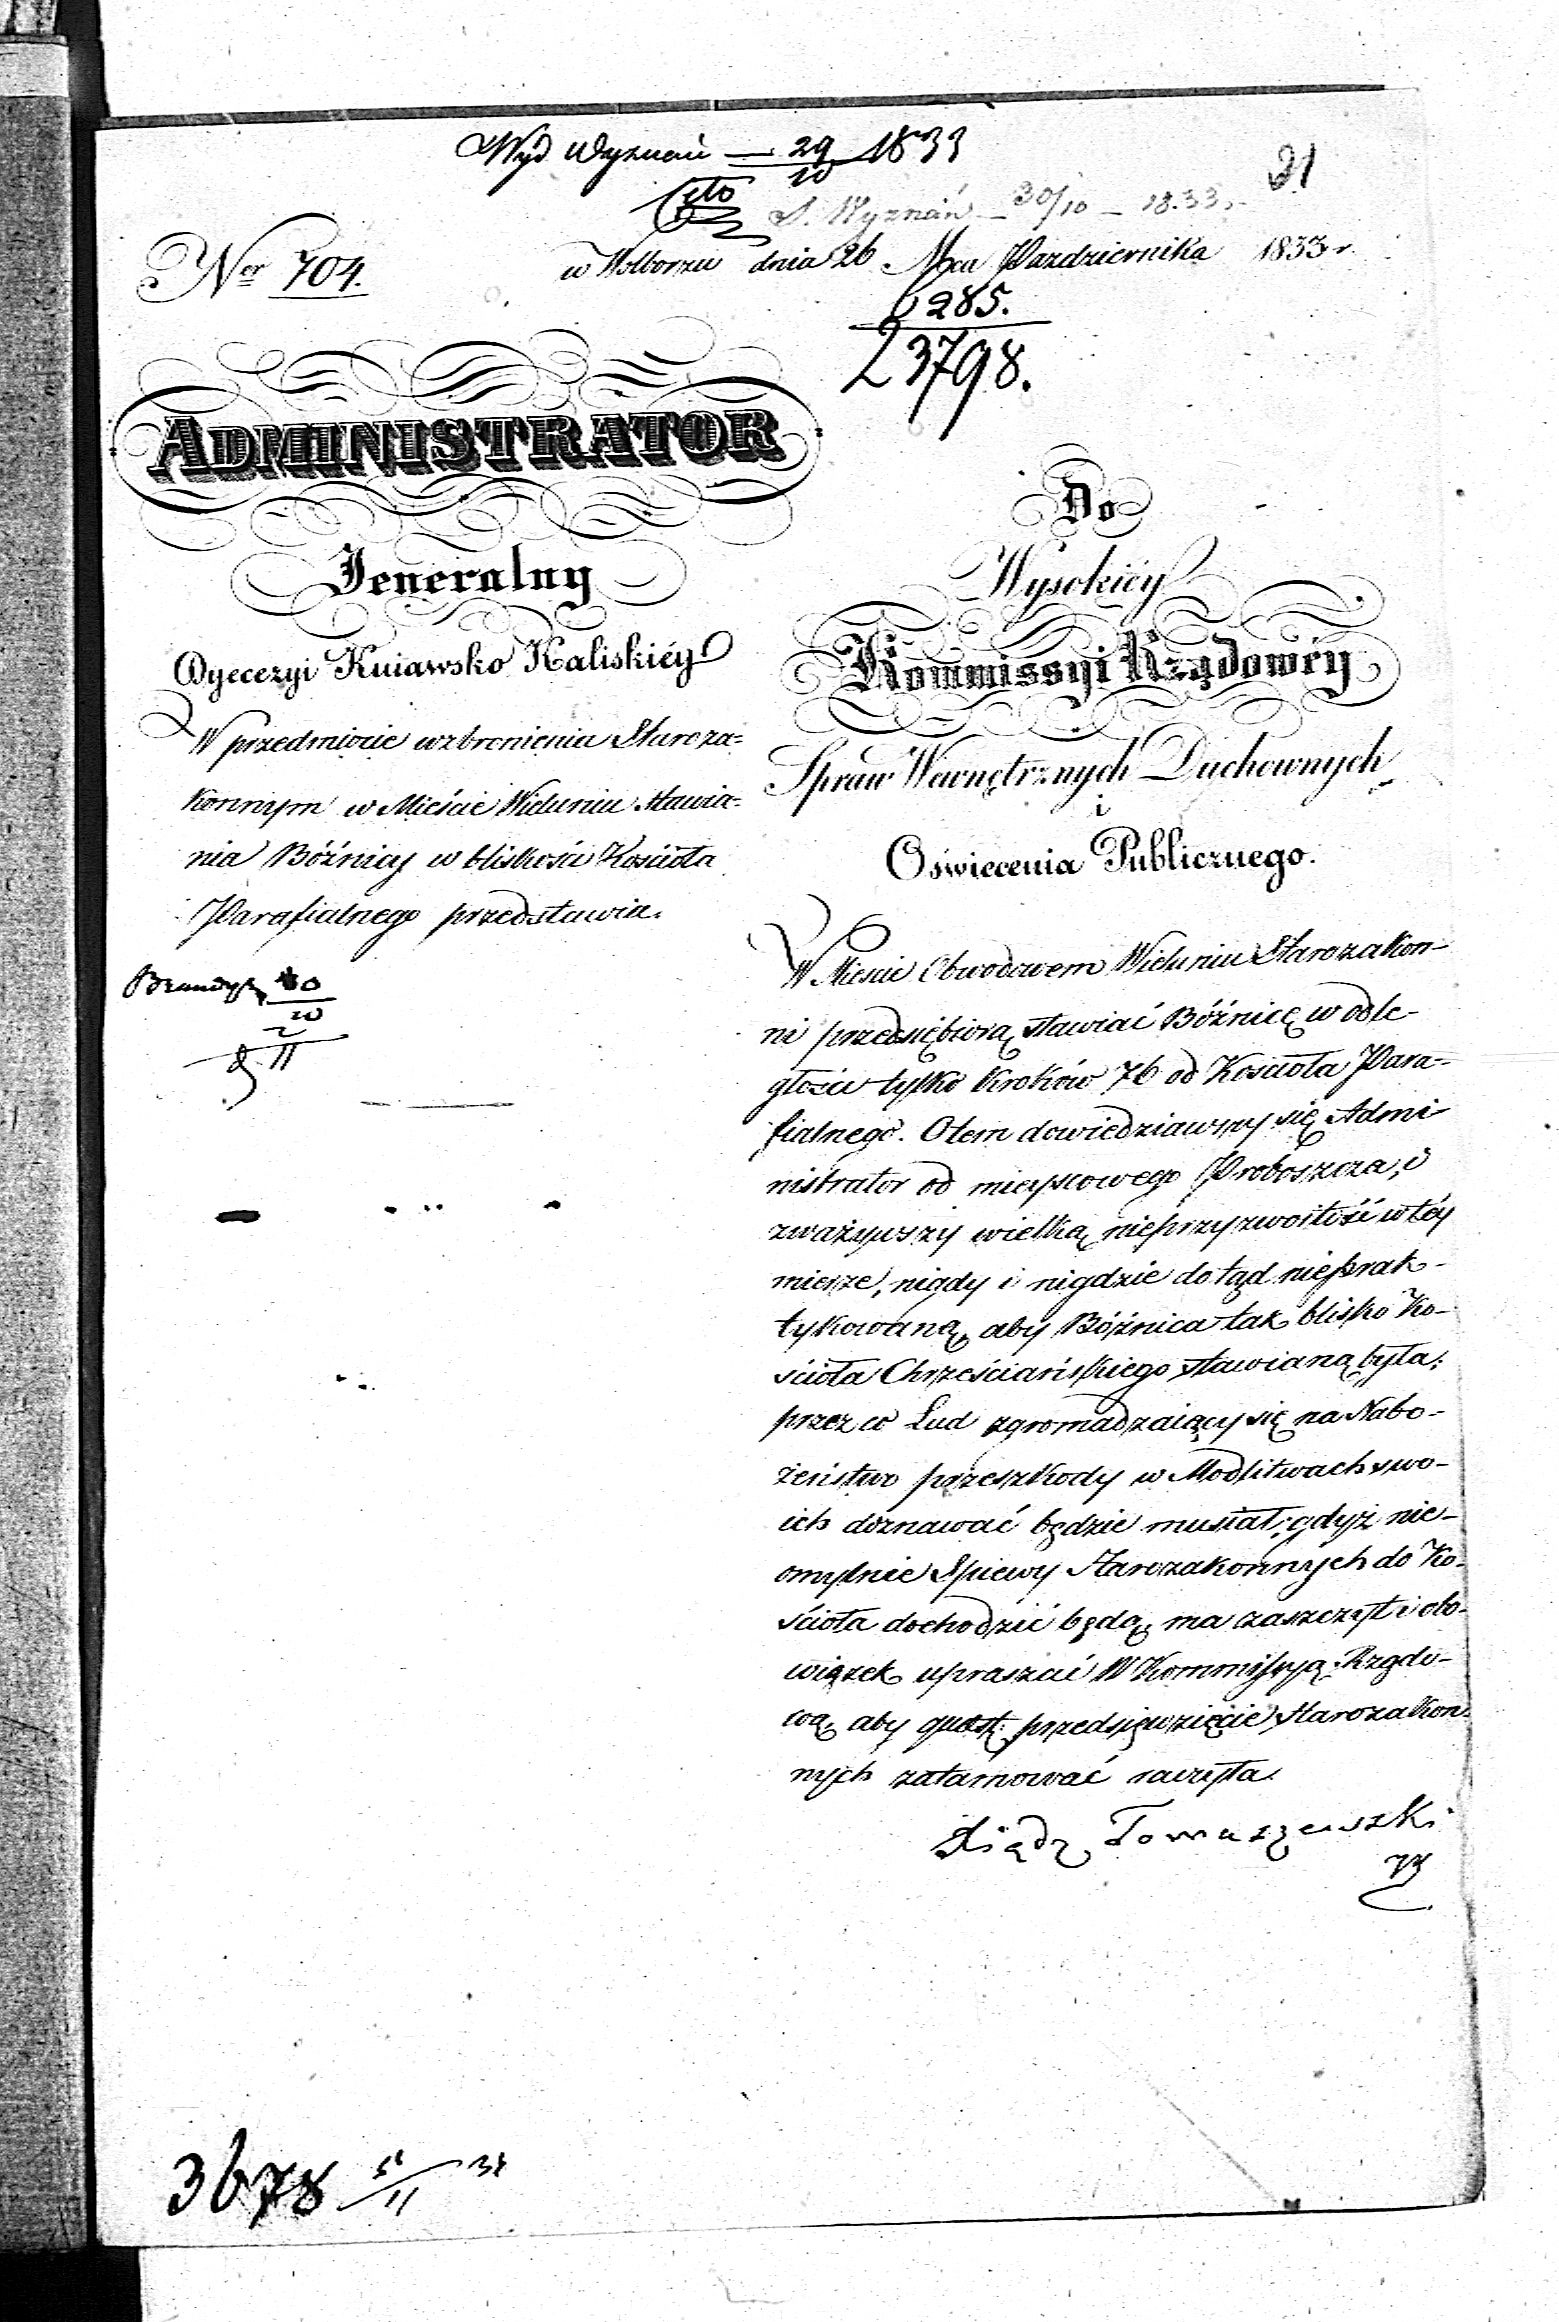 Wyd Wyznań — 29/10 1833
S. Wyznań — 30/10 — 1833.
21
Ner 704.
w Wolborzu dnia 26 Mca Pazdziernika 1833 r.
6285.
23798.
ADMINISTRATOR
Jeneralny
Dyecezyi Kuiawsko Kaliskiéy
W przedmiocie wzbronienia Staroza=
konnym w Mieście Wieluniu stawia=
nia Bóźnicy w bliskości Kościoła
Parafialnego przedstawia.
Do
Wysokiéy
Kommissyi Rządowéy
Spraw Wewnętrznych Duchownych
i
Oświecenia Publicznego.
W Mieście Obwodowem Wieluniu Starozakon-
ni przedsiębiorą stawiać Bóźnicę w odle-
głości tylko kroków 76 od Kościoła Para-
fialnego. O tem dowiedziawszy się Admi-
nistrator od mieyscowego Proboszcza, i
zważywszy wielką nieprzyzwoitość w téy
mierze, nigdy i nigdzie dotąd nieprak-
tykowaną, aby Bóźnica tak blisko Ko-
ścioła Chrześciańskiego stawianą była;
przez co Lud zgromadzaiący się na Nabo-
żeństwo przeszkody w Modlitwach swo-
ich doznawać będzie musiał; gdyż nie-
omylnie Spiewy Starozakonnych do Ko-
ścioła dochodzić będą, ma zaszczyt i obo-
wiązek upraszać W Kommissyą Rządo-
wą, aby quest: przedsięwzięcie Starozakon-
nych zatamować raczyła.
Xiądz Tomaszewski
3678 5/11 34